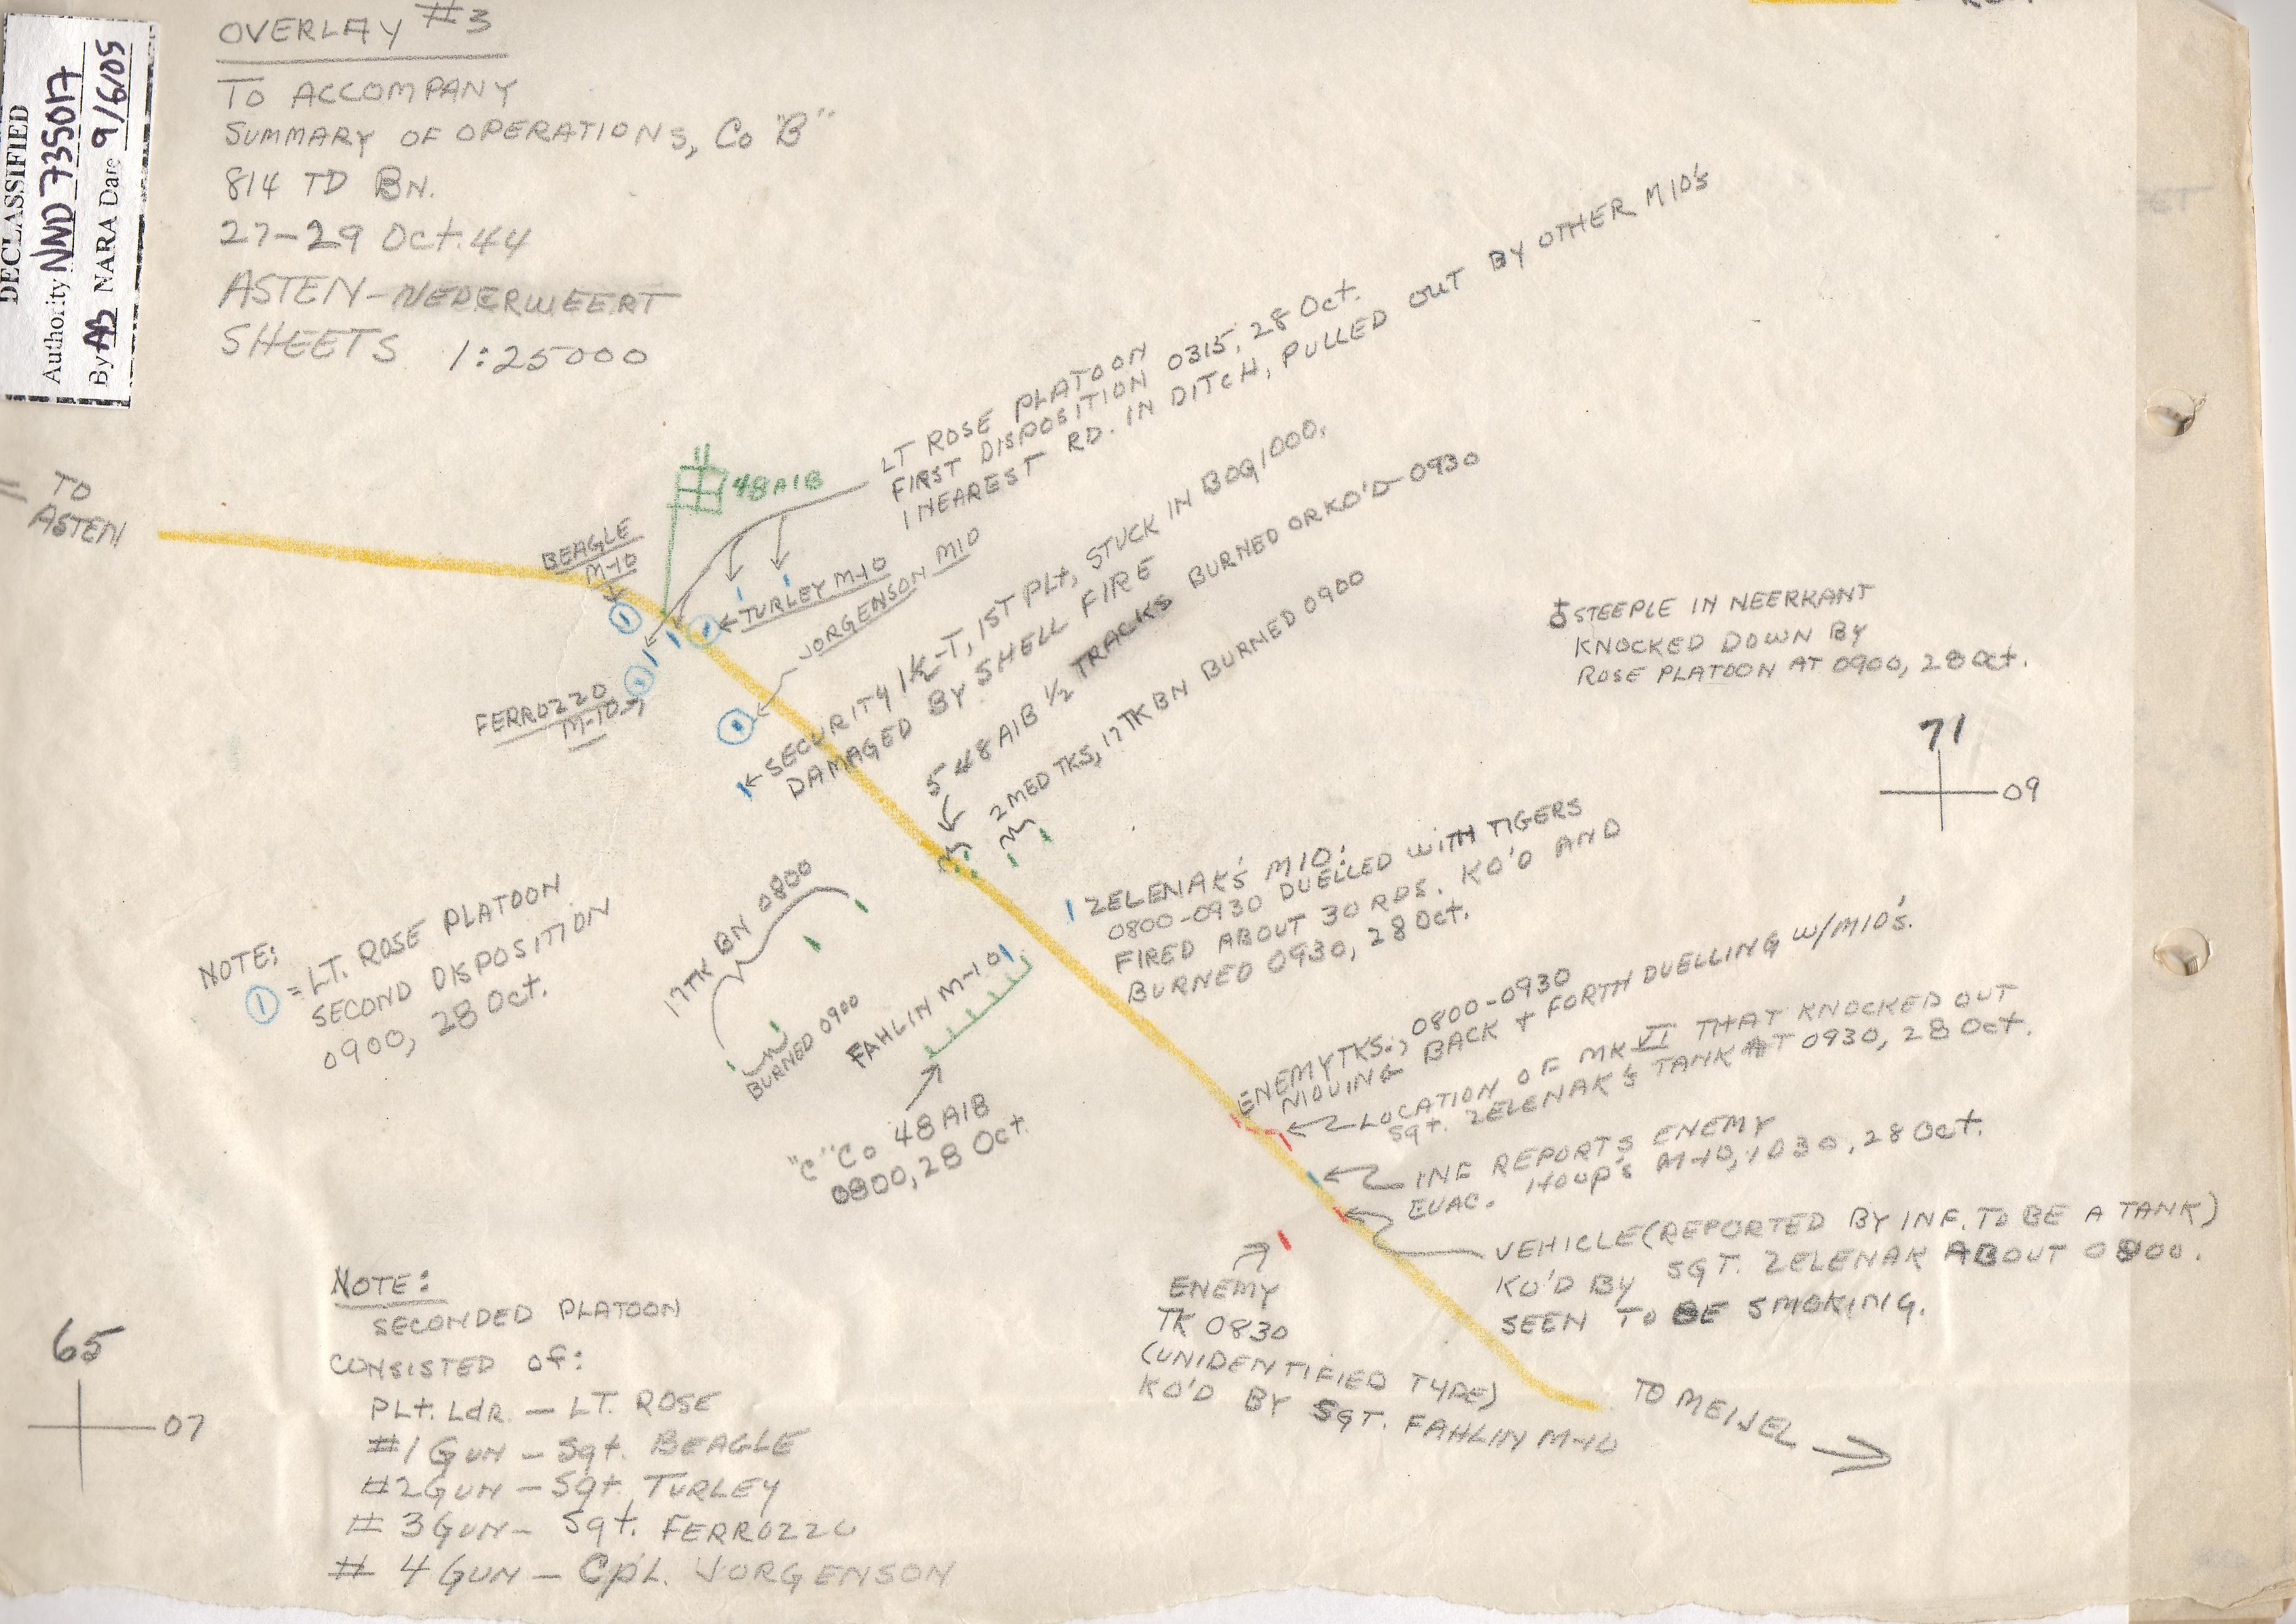 DECLASSIFIED
Authority NND 735017
By AB NARA Date 9/6/05
OVERLAY #3
TO ACCOMPANY
SUMMARY OF OPERATIONS, Co "B"
814 TD BN.
27-29 Oct. 44
ASTEN-NEDERWEERT
SHEETS 1:25000
TO
ASTEN
48 AIB
LT ROSE PLATOON
FIRST DISPOSITION 0315, 28 Oct.
1 NEAREST RD. IN DITCH, PULLED OUT BY OTHER M10's
BEAGLE
M-10
TURLEY M-10
JORGENSON M10
FERROZZO
M-10
SECURITY 1/2-T, 1ST PLt, STUCK IN BOG 1000.
DAMAGED BY SHELL FIRE
5 48 AIB 1/2 TRACKS BURNED OR KO'D 0930
2 MED TKS, 17 TK BN BURNED 0900
STEEPLE IN NEERKANT
KNOCKED DOWN BY
ROSE PLATOON AT 0900, 28 Oct.
71
09
ZELENAK'S M10:
0800-0930 DUELLED WITH TIGERS
FIRED ABOUT 30 RDS. KO'D AND
BURNED 0930, 28 Oct.
17 TK BN 0800
BURNED 0900
FAHLIN M-10
"C" Co 48 AIB
0800, 28 Oct.
NOTE:
1 = LT. ROSE PLATOON
SECOND DISPOSITION
0900, 28 Oct.
ENEMY TKS., 0800-0930
MOVING BACK + FORTH DUELLING W/M10's.
LOCATION OF MK VI THAT KNOCKED OUT
Sgt. ZELENAK'S TANK AT 0930, 28 Oct.
INF REPORTS ENEMY
EVAC. Houp's M-10, 1030, 28 Oct.
VEHICLE (REPORTED BY INF. TO BE A TANK)
KO'D BY SGT. ZELENAK ABOUT 0800.
SEEN TO BE SMOKING.
ENEMY
TK 0830
(UNIDENTIFIED TYPE)
KO'D BY SGT. FAHLIN M-10
TO MEIJEL
65
07
NOTE:
SECONDED PLATOON
CONSISTED of:
PLt. LdR. - LT. ROSE
#1 GUN - Sgt. BEAGLE
#2 GUN - Sgt. TURLEY
# 3 GUN - Sgt. FERROZZO
# 4 GUN - CpL. JORGENSON